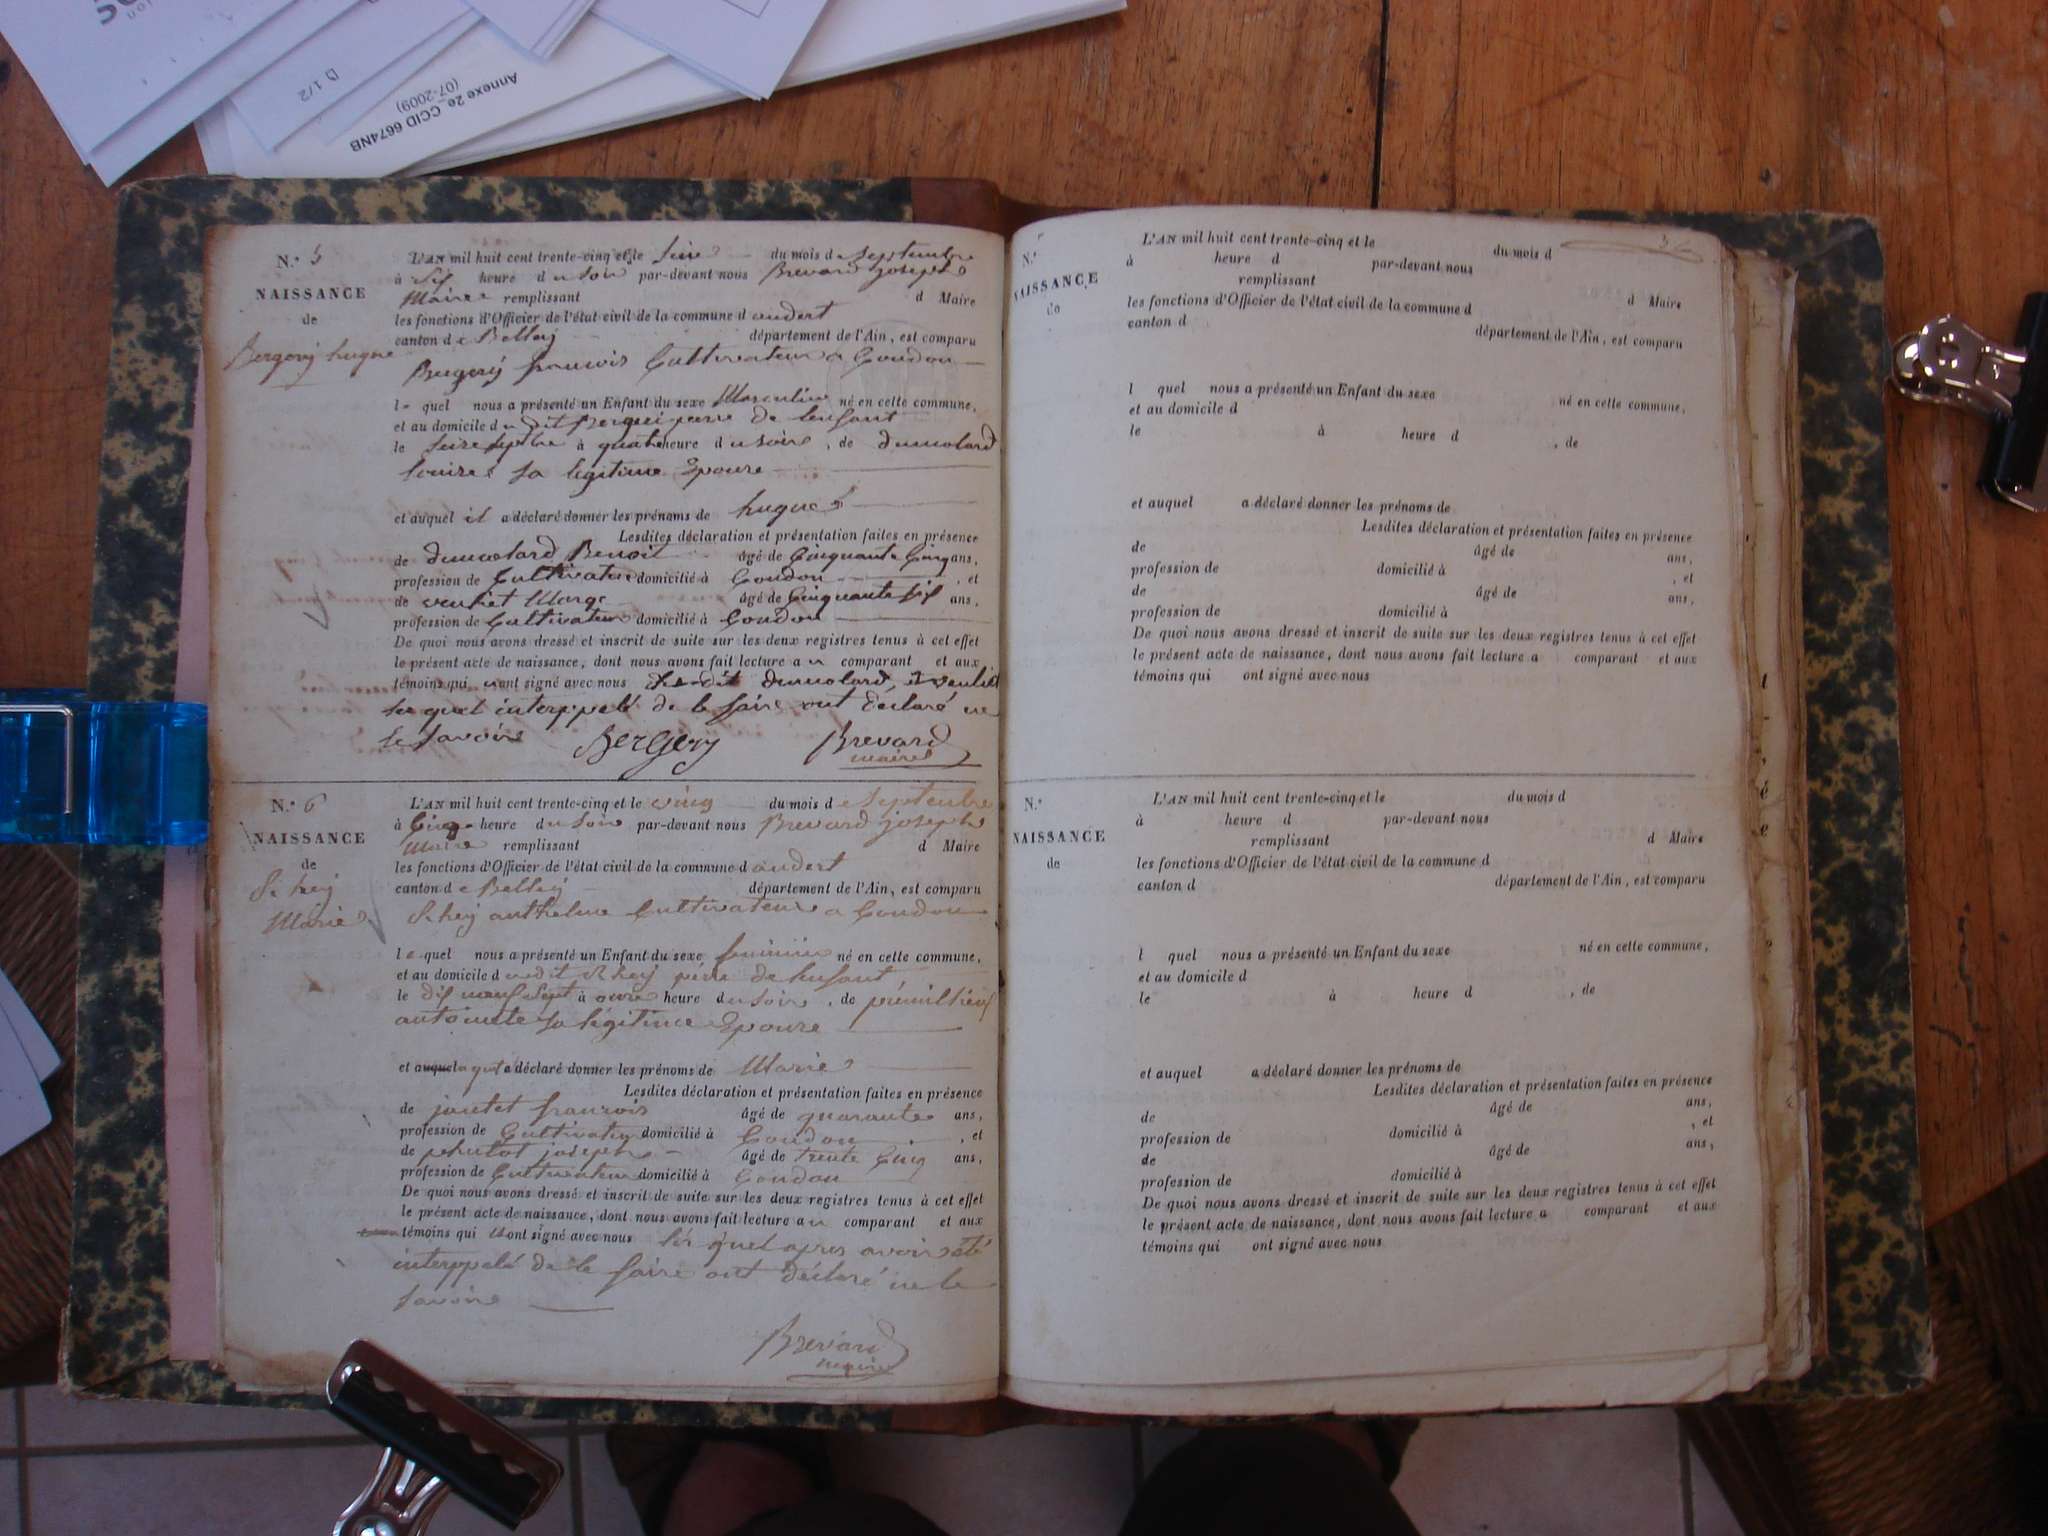 D 1/2
Annexe 2e_CCID 6674NB
(07-2009)
N.° 5
NAISSANCE
de
Bergery hugue
L'AN mil huit cent trente-cinq et le seize du mois de Septembre
à six heure du soir par-devant nous Brevard joseph
Maire remplissant d Maire
les fonctions d'Officier de l'état civil de la commune d andert
canton de Belley département de l'Ain, est comparu
Bergery francois Cultivateur a Condon
le quel nous a présenté un Enfant du sexe Masculin né en cette commune,
et au domicile du dit Bergery pere de lenfant
le seize à quatre heure du soir, de dumolard
louise sa légitime Epouse
et auquel il a déclaré donner les prénoms de hugue
Lesdites déclaration et présentation faites en présence
de dumolard Benoit âgé de Cinquante Cinq ans,
profession de Cultivateur domicilié à Condon, et
de âgé de Cinquante six ans,
profession de Cultivateur domicilié à Condon
De quoi nous avons dressé et inscrit de suite sur les deux registres tenus à cet effet
le présent acte de naissance, dont nous avons fait lecture au comparant et aux
témoins qui ont signé avec nous dumolard et
interppelé de le faire ont déclaré ne
le savoir Bergery Brevard
maire
N.° 6
NAISSANCE
de
Marie
L'AN mil huit cent trente-cinq et le vingt du mois de Septembre
à Cinq heure du soir par-devant nous Brevard joseph
Maire remplissant d Maire
les fonctions d'Officier de l'état civil de la commune d andert
canton de Belley département de l'Ain, est comparu
anthelme Cultivateur a Condon
le quel nous a présenté un Enfant du sexe feminin né en cette commune,
et au domicile dudit pere de lenfant
le dix neuf Sept à onze heure du soir, de prémillieux
antoinette sa légitime Epouse
et auquel a déclaré donner les prénoms de Marie
Lesdites déclaration et présentation faites en présence
de jantet francois âgé de quarante ans,
profession de Cultivateur domicilié à Condon, et
de joseph âgé de trente Cinq ans,
profession de Cultivateur domicilié à Condon
De quoi nous avons dressé et inscrit de suite sur les deux registres tenus à cet effet
le présent acte de naissance, dont nous avons fait lecture au comparant et aux
témoins qui nont signé avec nous les quel apres avoir été
interppelé de le faire ont déclaré ne le
savoir
Brevard
maire
N.°
NAISSANCE
de
L'AN mil huit cent trente-cinq et le du mois d
à heure d par-devant nous
remplissant d Maire
les fonctions d'Officier de l'état civil de la commune d
canton d département de l'Ain, est comparu
l quel nous a présenté un Enfant du sexe né en cette commune,
et au domicile d
le à heure d , de
et auquel a déclaré donner les prénoms de
Lesdites déclaration et présentation faites en présence
de âgé de ans,
profession de domicilié à , et
de âgé de ans,
profession de domicilié à
De quoi nous avons dressé et inscrit de suite sur les deux registres tenus à cet effet
le présent acte de naissance, dont nous avons fait lecture a comparant et aux
témoins qui ont signé avec nous
N.°
NAISSANCE
de
L'AN mil huit cent trente-cinq et le du mois d
à heure d par-devant nous
remplissant d Maire
les fonctions d'Officier de l'état civil de la commune d
canton d département de l'Ain, est comparu
l quel nous a présenté un Enfant du sexe né en cette commune,
et au domicile d
le à heure d , de
et auquel a déclaré donner les prénoms de
Lesdites déclaration et présentation faites en présence
de âgé de ans,
profession de domicilié à , et
de âgé de ans,
profession de domicilié à
De quoi nous avons dressé et inscrit de suite sur les deux registres tenus à cet effet
le présent acte de naissance, dont nous avons fait lecture a comparant et aux
témoins qui ont signé avec nous